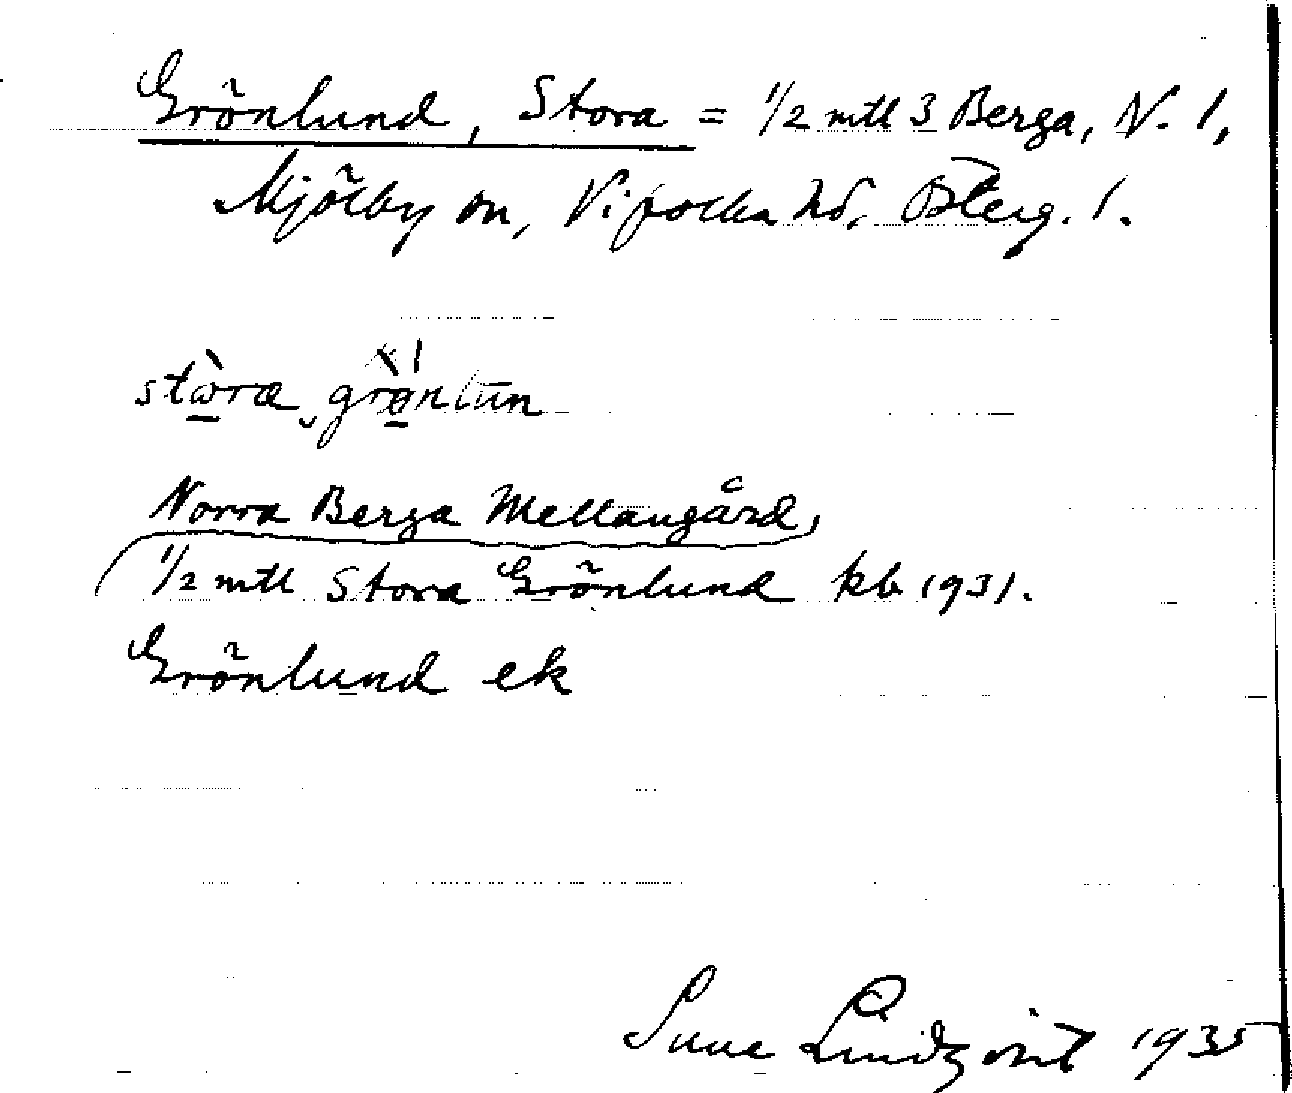 Grönlund, Stora = 1/2 mtl 3 Berga, N. 1,
Mjölby sn, Vifolka hd, Österg. l.
stora grönlun
Norra Berga Mellangård,
1/2 mtl Stora Grönlund kb 1931.
Grönlund ek
Sune Lindqvist 1935